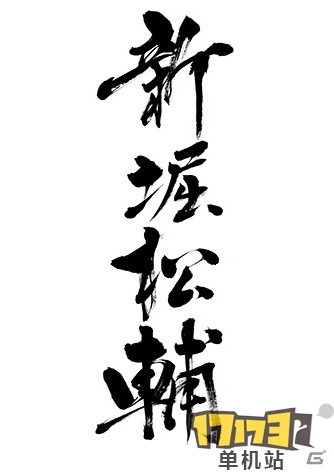 新堀松輔
17173
单机站
G